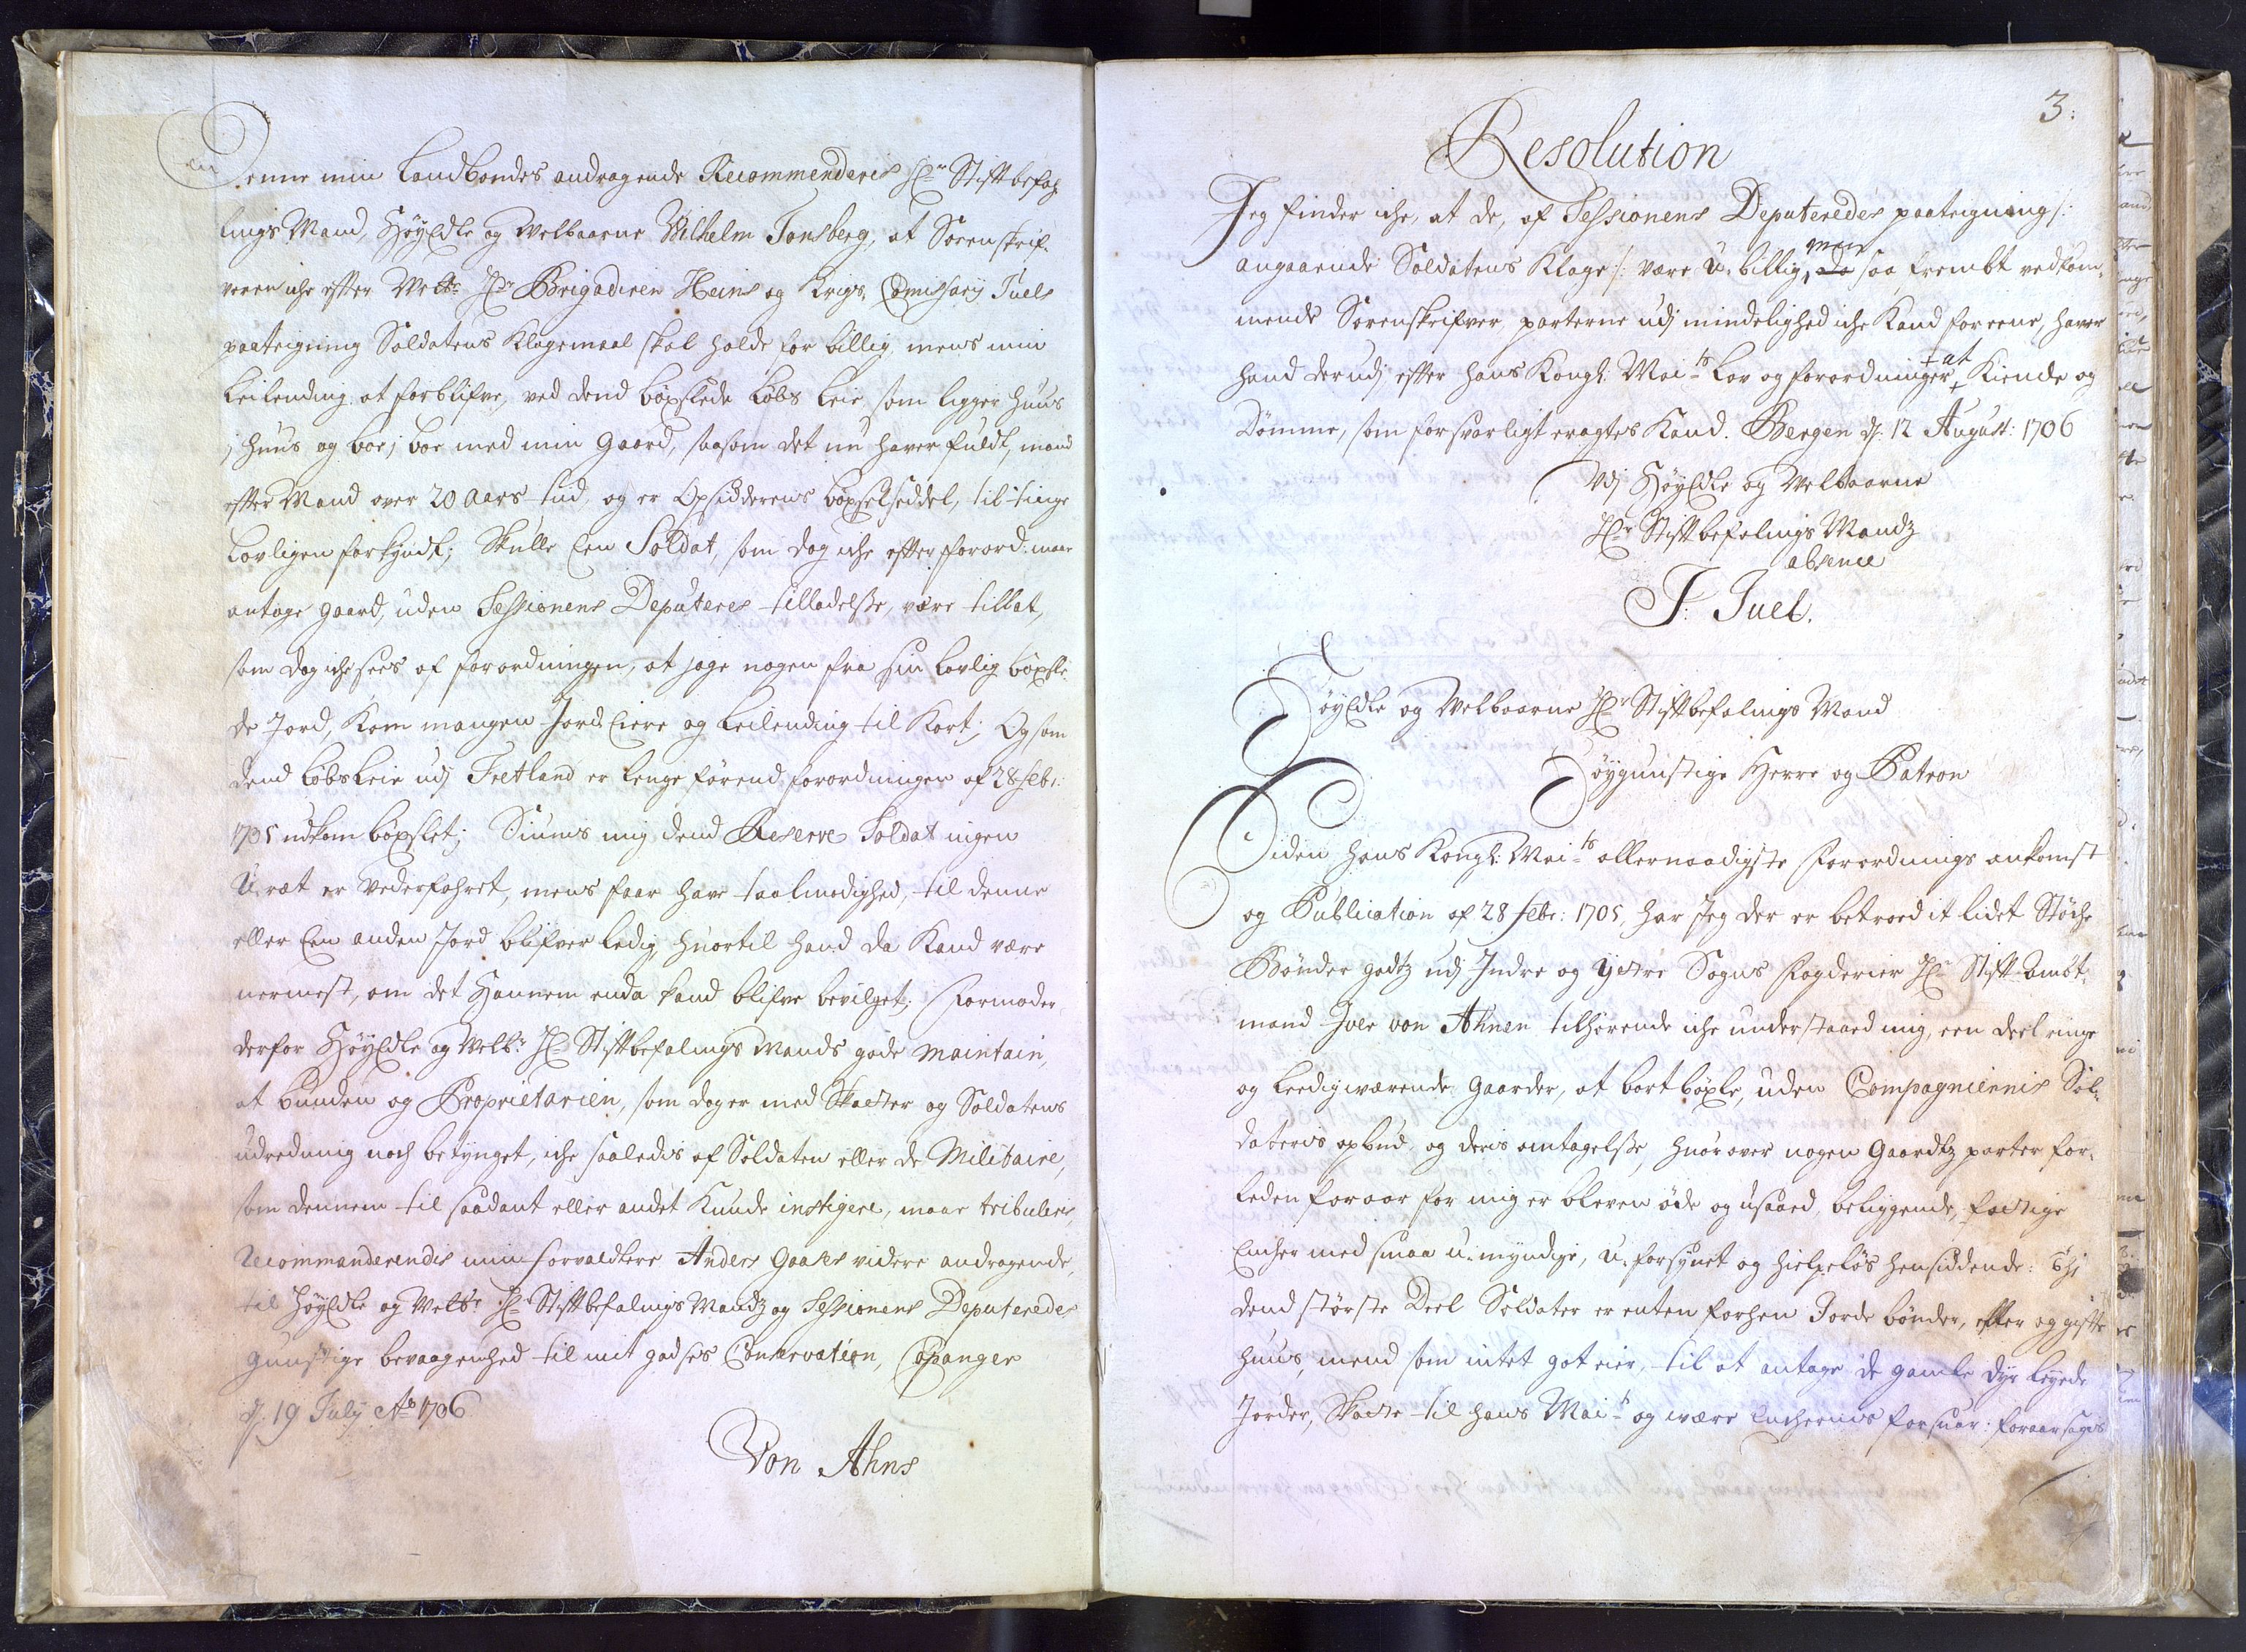 Denne min Landbondes andragende Recommenderis Hr Stiftbefah¸
lings Mand, HøyEdle og Velbaarne Vilhelm Tonsberg, at Sorenskrif¸
veren iche efter Velbr Hr Brigadiren Heins og Krigs, Comissarij Juels
paateigning Soldatens Klagemaal skal holde for billig, mens min
Leilending at forblifve, ved dend böxlede Löbs Leie, som ligger huus
j huus og boe j boe med min Gaard, saasom det nu haver fuldt, mand
efter Mand over 20 Aars tiid, og er Opsidderens böxselseddel, til tinge
Lovligen forkyndt; Skulle Een Soldat, som dog iche efter forord: maae
antage gaard, uden Sessionens Deputeres tilladelsse, være tillat,
som dog iche sees af forordningen, at jage nogen fra sin lovlig böxle¸
de Jord, Kom mangen Jord Eiere og Leilending til Kort; Og som
dend Löbs Leie udj Tretland er lenge förend forordningen af 28 febr:
1705 udkom böxslet; Siunis mig dend Reserve Soldat ingen
U,ræt er Vederfahret, mens faar have taalmodighed, til denne
eller Een anden Jord blifver ledig, huortil hand da Kand være
nermest, om det Hannem enda kand blifve bevilget; Formoder
derfor HøyEdle og Velbr Hr Stiftbefalings Mands gode maintain,
at bunden og Proprietarien, som dog er med Skatter og Soldatens
udredning noch betynget, iche saaledis af Soldaten eller de Militaire,
som dennem til saadant eller andet Kunde instigere, maae tribuleris,
Recommanderendis min forvaldtere Anders Gaases videre andragende,
til HøyEdle og Velbr Hr Stiftbefalings Mandz og Sessionens Deputeredes
gunstige bevaagenhed til mit godses Conservation, Copanger
d. 19 July Ao 1706
Von Ahns
3:
Resolution
Jeg finder iche, at de, af Sessionens Deputeredes paateigning /:
angaaende Soldatens Klage :/ være U, billig, men saa fremt vedkom¸
mende Sorenskrifver parterne udj mindelighed iche Kand foreene, haver
hand derudj efter hans Kongl: Maits Lov og forordninger at Kiende og
Dömme, som forsvarligt eragtes Kand. Bergen d: 12 August: 1706
Udj HøyEdle og Velbaarne
Hr Stiftbefalings Mandz
absence
J: Juel.
HöyEdle og Velbaarne Hr Stiftbefalings Mand
Höygunstige Herre og Patron
Siden hans Kongl: Maits allernaadigste Forordnings ankomst
og Publication af 28 febr: 1705, har Jeg der er betroed it lidet Støche
Bönder godtz udj Indre og Ijttre Sogns Fogderier Hr Stift Ambt¸
mand Iver von Ahnen tilhørende iche understaaed mig, een deel ringe
og Leedigværende Gaarder, at bort böxle, uden Compagniernis Sol¸
daters opbud, og deris antagelsse, huorover nogen Gaardtz parter for¸
leden foraar for mig er bleven öde og usaaed beliggende, fattige
Encher med smaa u,myndige, u,forsynet og hielpelös hensiddende: Thj
dend störste Deel Soldater er enten forhen Jorde bönder, eller og gifte
huus mend som intet got eier, til at antage de gamle dyr leyede
Jorder, Skatte til hans Mait og være Enchernis forsuar: foraarsages